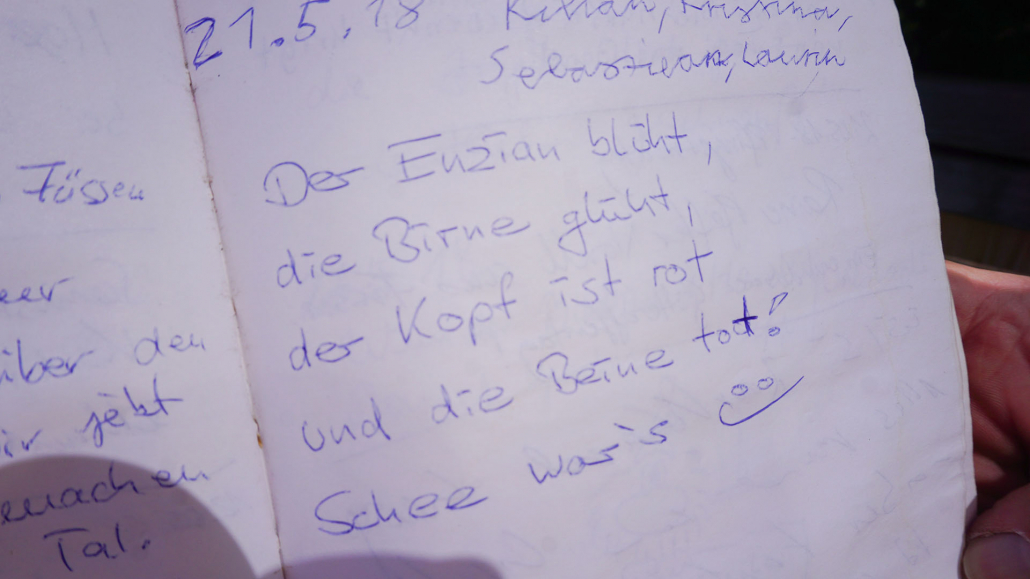 Füssen
über den
jetzt
Tal.
21.5.18 Kilian, Kristina,
Sebastian, Laurin
Der Enzian blüht,
die Birne glüht,
der Kopf ist rot
und die Beine tot!
Schee war's